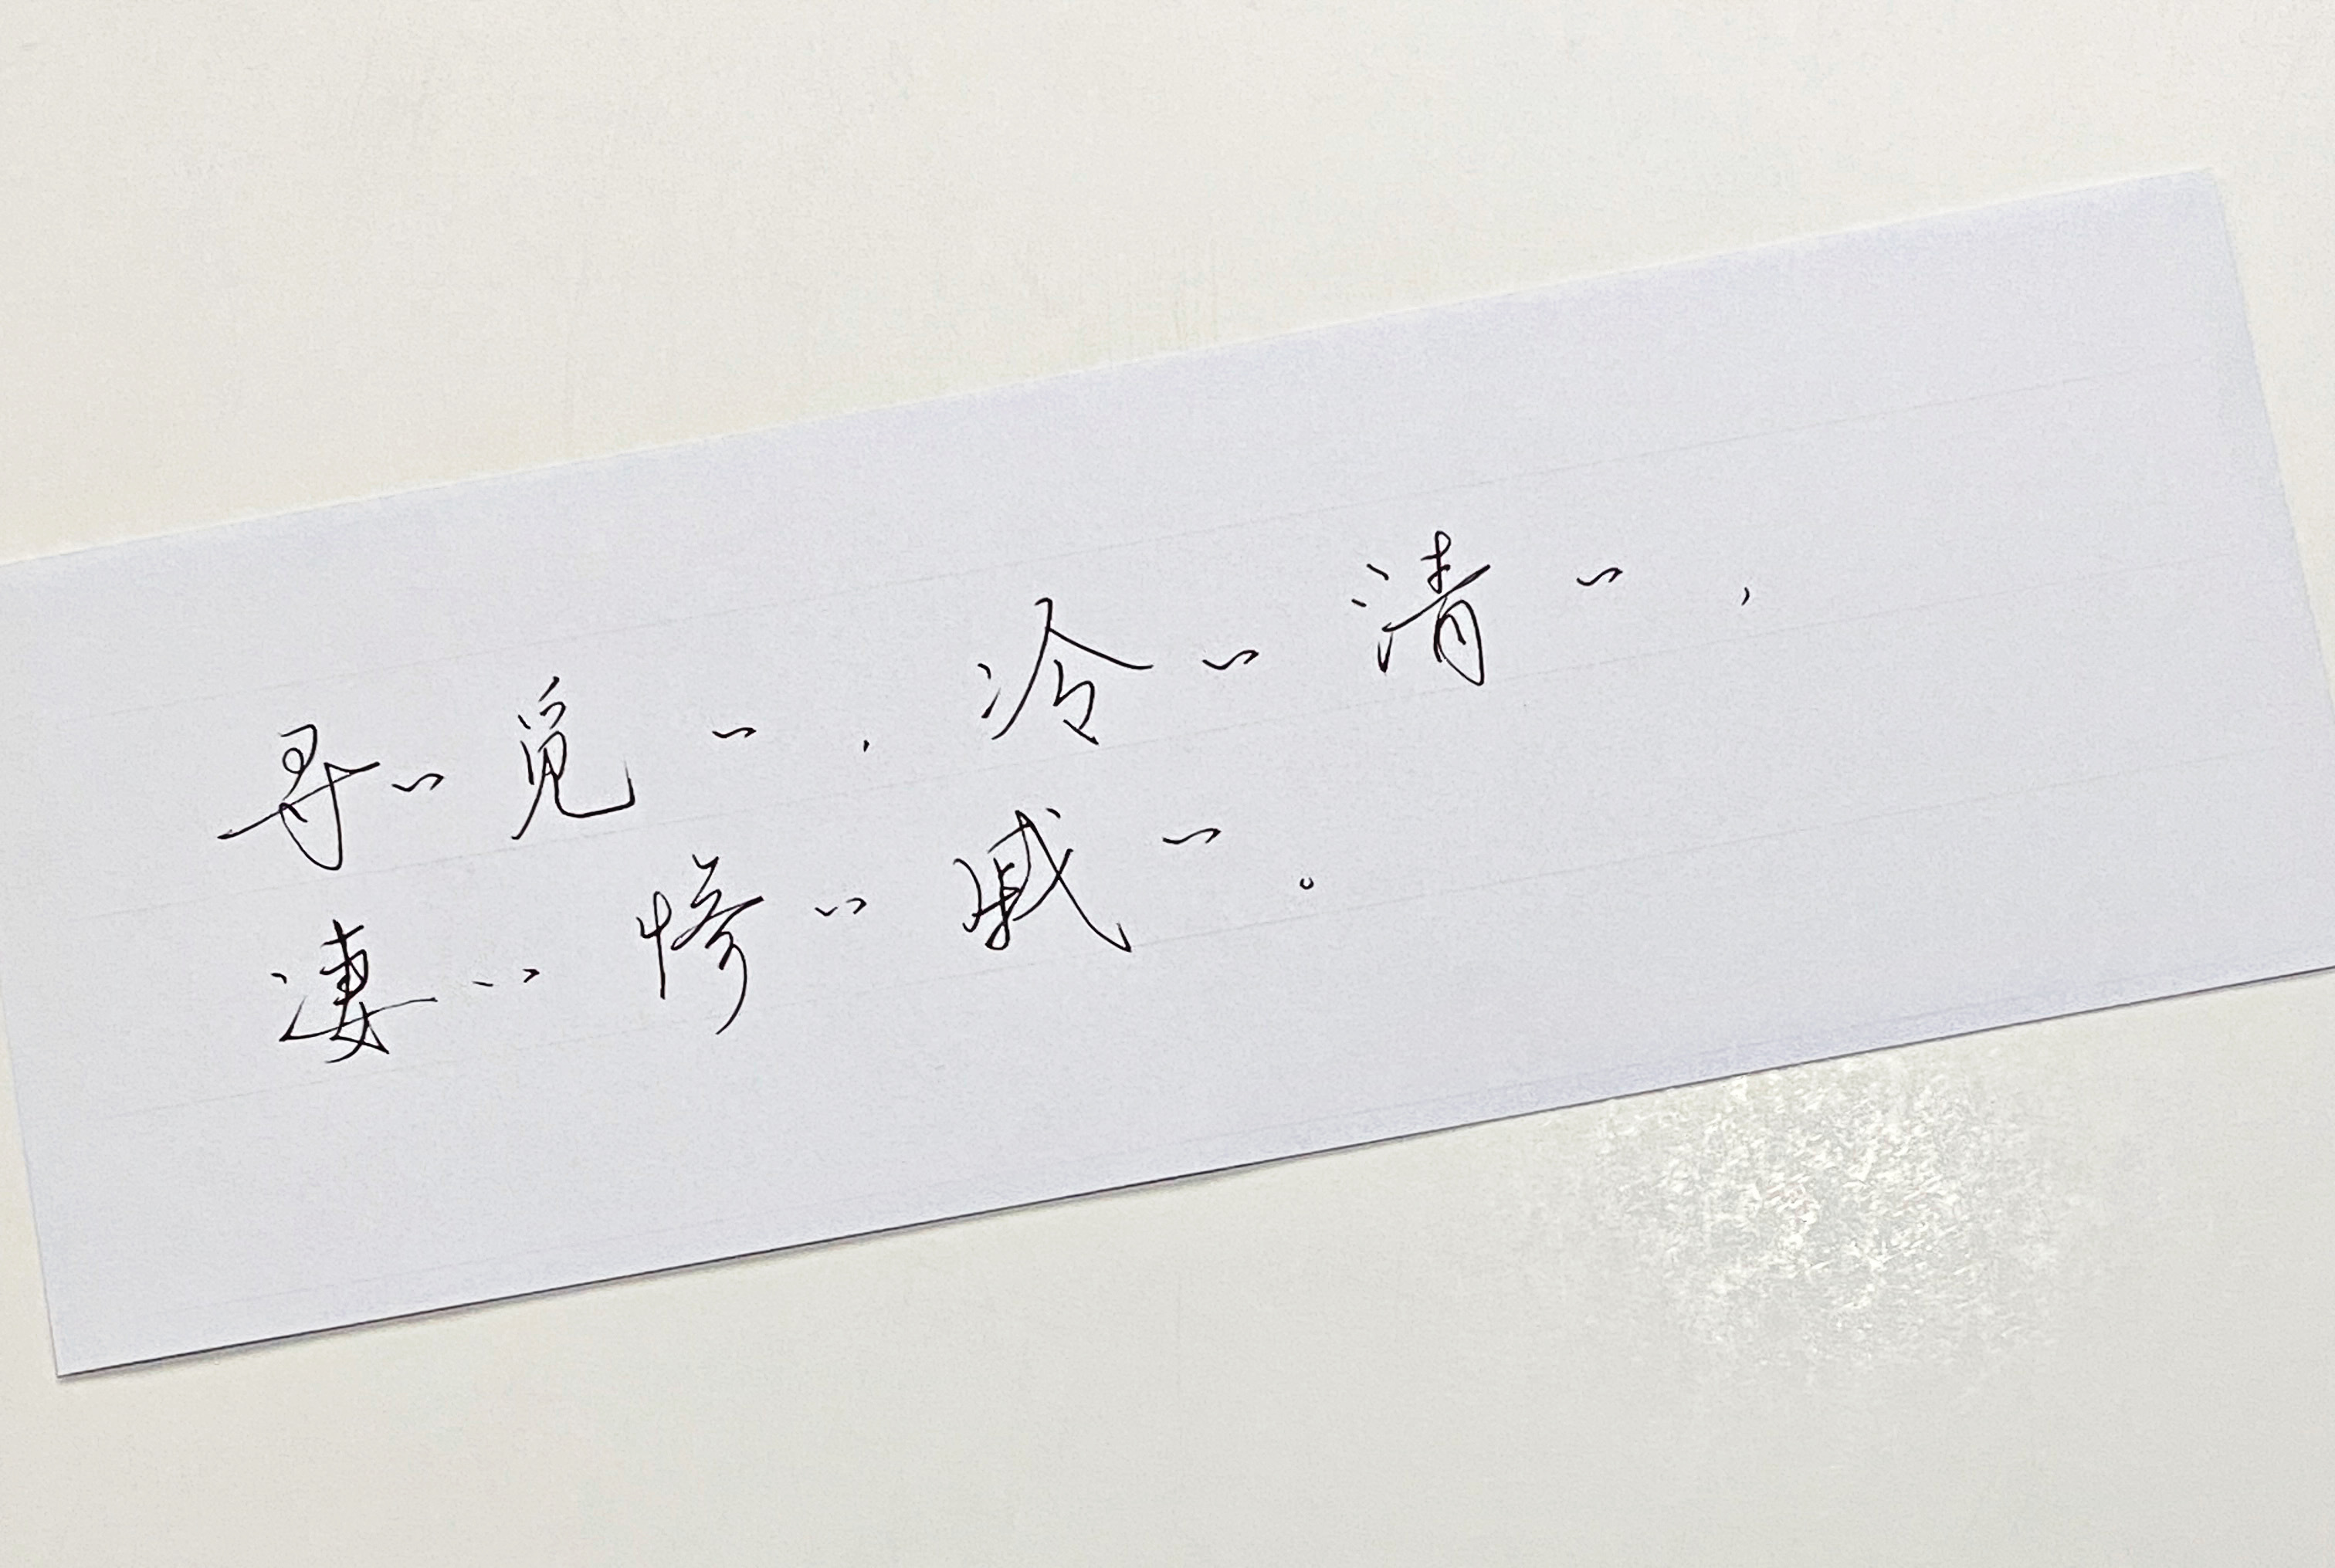 寻〻觅〻，冷〻清〻，
凄〻惨〻戚〻。